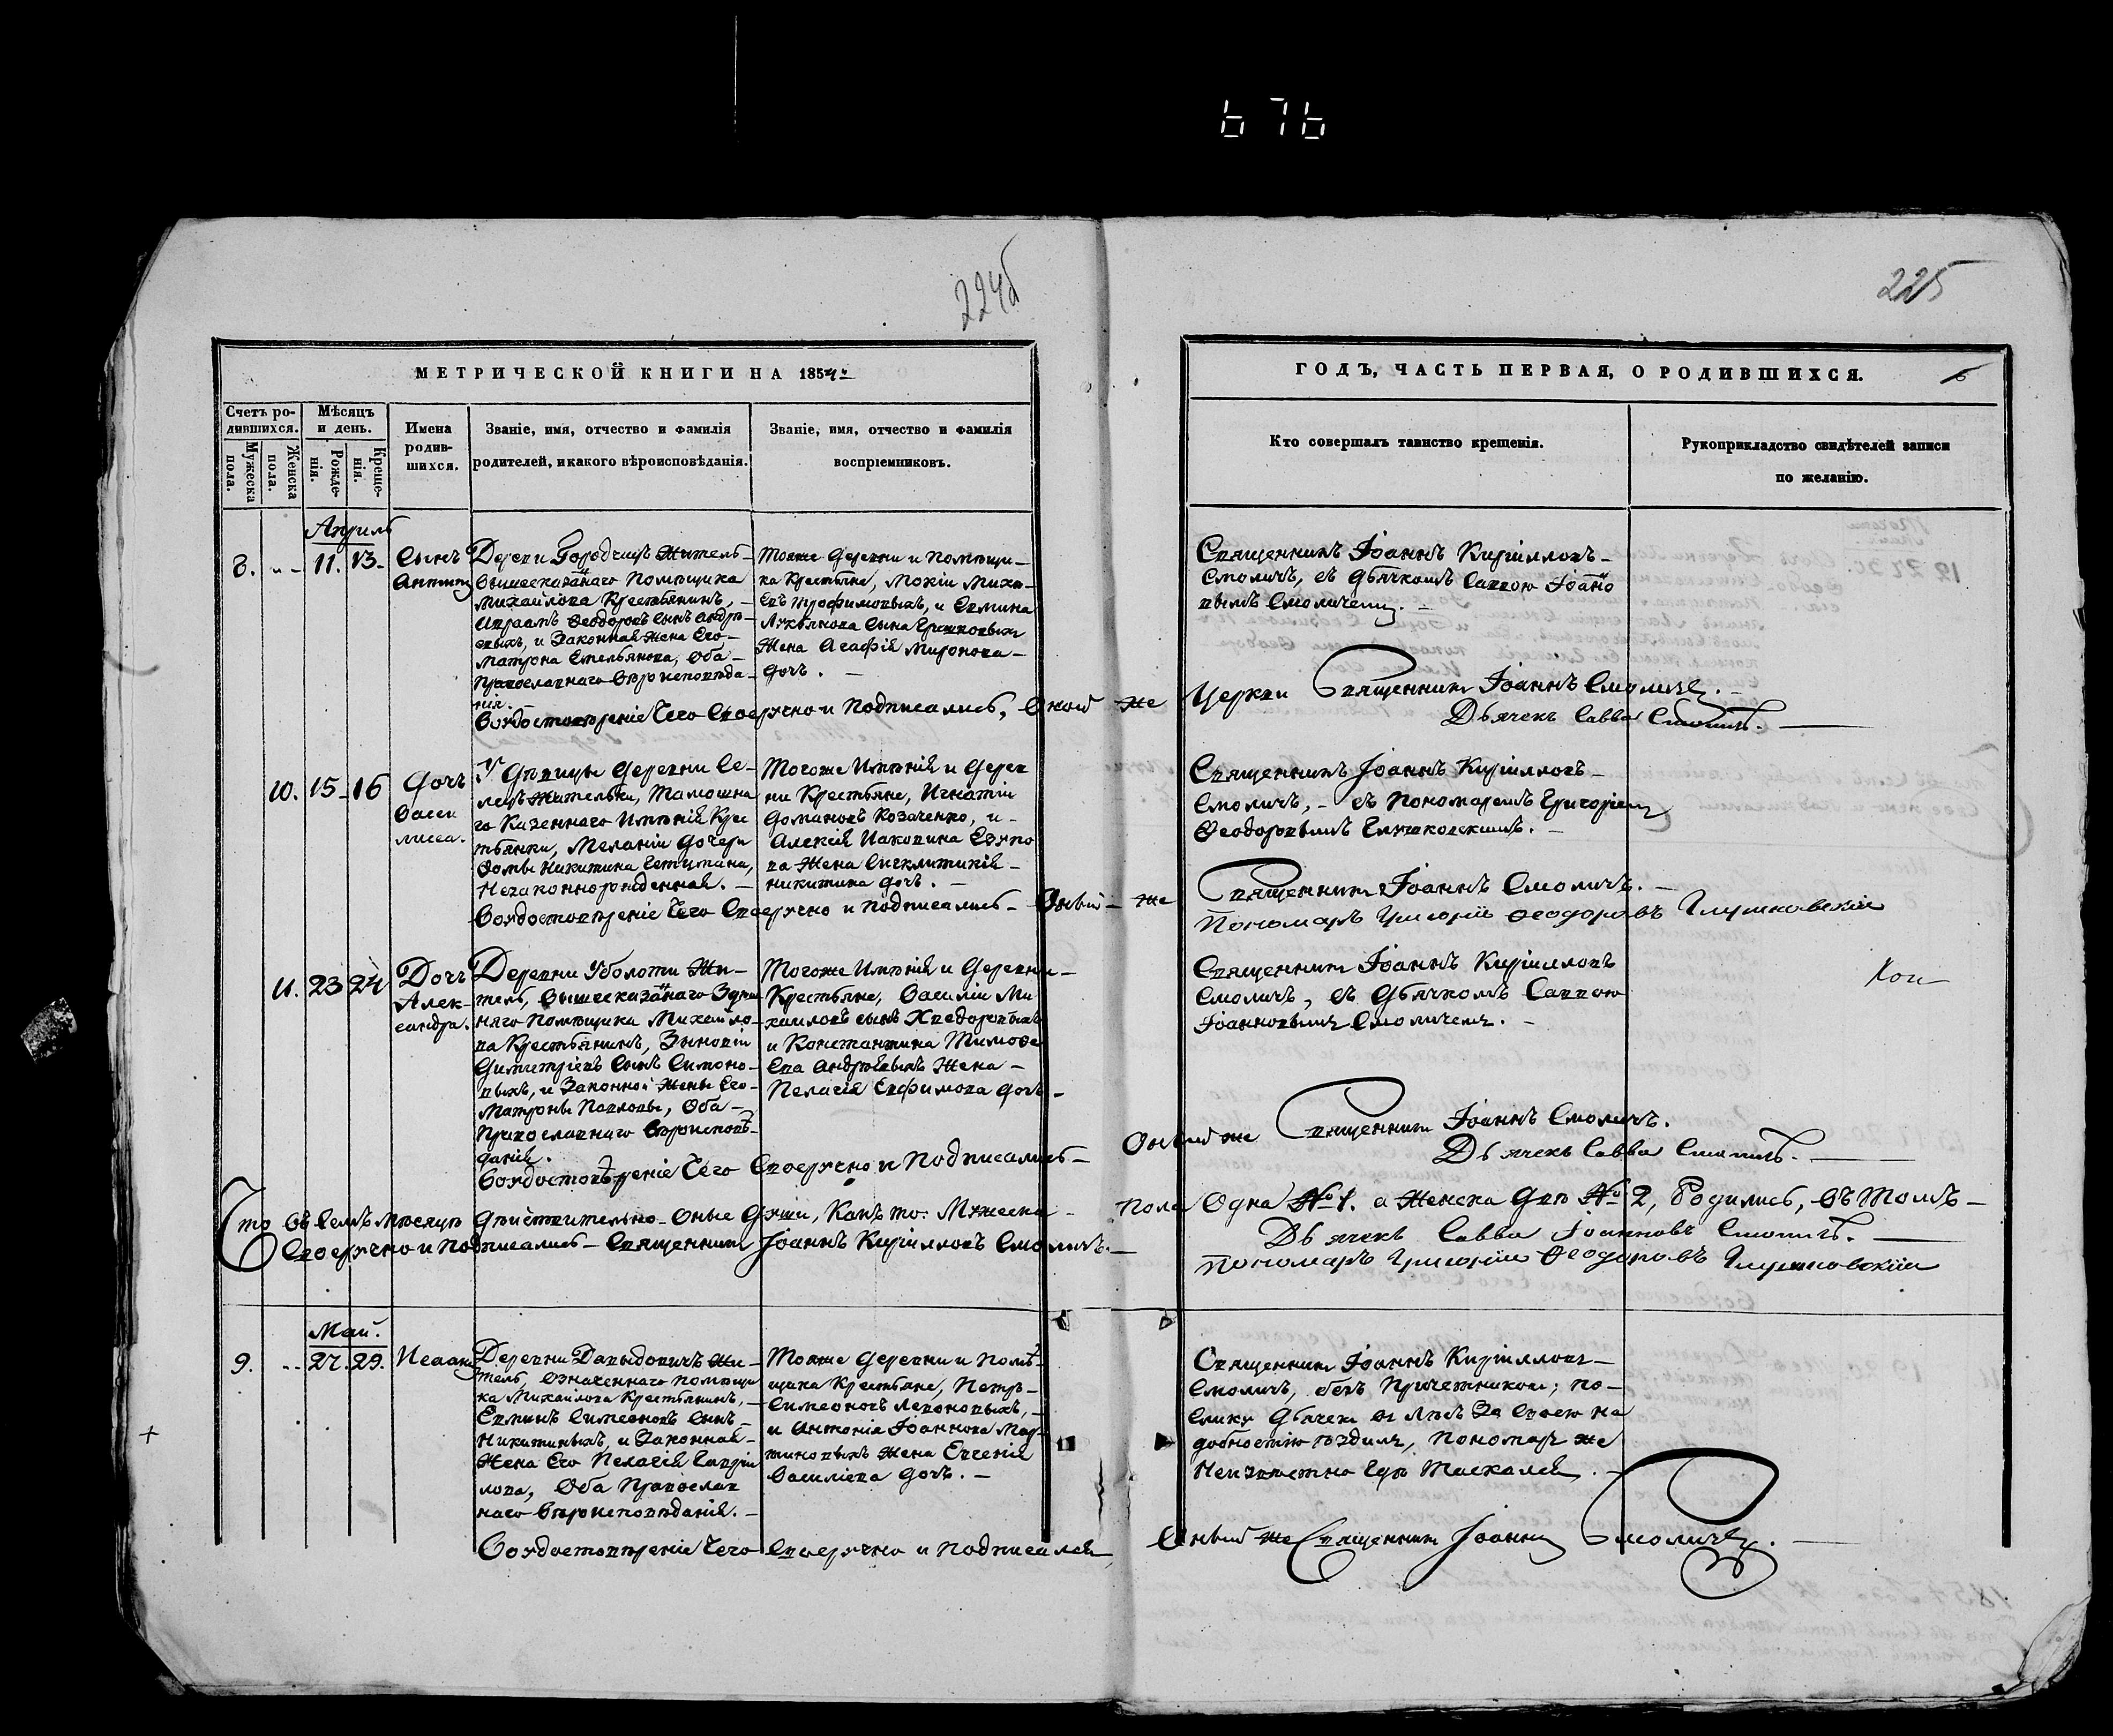 676
224б
225
МЕТРИЧЕСКОЙ КНИГИ НА 1854й
Счетъ ро-
дившихся.
Мужеска
пола.
Женска
пола.
Мѣсяцъ
и день.
Рожде-
нія.
Креще-
нія.
Имена
родив-
шихся.
Званіе, имя, отчество и фамилія
родителей, и какого вѣроисповѣданія.
Званіе, имя, отчество и фамилія
воспріемниковъ.
ГОДЪ, ЧАСТЬ ПЕРВАЯ, О РОДИВШИХСЯ.
Кто совершалъ таинство крещенія.
Рукоприкладство свидѣтелей записи
по желанію.
Апрѣль
8. „ 11. 13.
Сынъ
Антипъ
Деревни Городчицъ Житель
вышесказаннаго Помѣщика
Михайлова Крестьянинъ,
Авраамъ Ѳеодоровъ сынъ
и Законная жена Его
Матрона Емельянова, Оба
Православнаго Вѣроисповѣда-
нія.
Тояже деревни и Помѣщи-
ка Крестьяне, Мокій Михѣ-
евъ Трофимовыхъ, и Ермила
Лукьянова Сына
Жена Агафія Миронова
дочь.
Священникъ Іоаннъ Кирилловъ
Смоличъ, съ дьячкомъ Саввою Іоанно
вымъ Смоличемъ.
Во удостовѣреніе Чего Своеручно и Подписались, Оной же Церкви Священникъ Іоаннъ Смоличъ.
Дьячекъ Савва Смоличъ.
10. 15. 16
Дочь
Васси
лисса.
У Дѣвицы деревни Се-
лецъ Жительки, Тамошня
го Казеннаго Имѣнія Крес
тьянки, Меланіи дочери
Ѳомы Никитина
Незаконнорожденная.
Тогоже Имѣнія и дерев
ни Крестьяне, Игнатій
Домановъ Козаченко, и
Алексія Иаковина
ва Жена Синклитикія
Никитина дочь.
Священникъ Іоаннъ Кирилловъ
Смоличъ, съ Пономаремъ Григоріемъ
Ѳеодоровымъ Глушковскимъ.
Во удостовѣреніе Чего Своеручно и Подписались Оный же Священникъ Іоаннъ Смоличъ.
Пономарь Григорій Ѳеодоровъ Глушковскій
11. 23 24
Дочь
Алек-
сандра.
Деревни Уболоти Жи-
тель, вышесказаннаго Здѣш
няго Помѣщика Михайло-
ва Крестьянинъ, Зиновій
Димитріевъ Сынъ Симоно-
выхъ, и Законной Жены Его
Матроны Павловы, Оба
Православнаго Вѣроисповѣ-
данія.
Тогоже Имѣнія и Деревни
Крестьяне, Василій Ми
хаиловъ сынъ Хведоровыхъ
и Константина Тимоѳе
ева Андрѣевыхъ Жена
Пелагія Евфимова дочь
Священникъ Іоаннъ Кирилловъ
Смоличъ, съ Дьячкомъ Саввою
Іоанновымъ Смоличемъ.
Во удостовѣреніе Чего Своеручно и Подписались Оный же Священникъ Іоаннъ Смоличъ.
Дьячекъ Савва Смоличъ.
Что въ Семъ Мѣсяцѣ дѣйствительно Оные Души, Какъ то: Мужеска пола Одна №1. а Женска Двѣ № 2, Родились, въ Томъ
Своеручно и Подписались Священникъ Іоаннъ Кирилловъ Смоличъ. Дьячекъ Савва Іоанновъ Смоличъ.
Пономарь Григорій Ѳеодоровъ Глушковскій
Май.
9. 27. 29. Исаакій
Деревни Давыдовичъ Жи-
тель, означеннаго помѣщи
ка Михайлова Крестьянинъ,
Ермилъ Симеоновъ Сынъ
Никитиныхъ, и Законная
Жена Его Пелагія Гаврии
лова, Оба Православ
наго Вѣроисповѣданія.
Тояже Деревни и Помѣ-
щика Крестьяне, Петръ
Симеоновъ Левоновыхъ,
и Антонія Іоаннова Мар-
тиновыхъ Жена Евгенія
Василіева дочь.
Священникъ Іоаннъ Кирилловъ
Смоличъ, безъ Причетниковъ; по-
елику Дьячекъ въ лѣсъ За Своею На
добностію ѣздилъ, Пономарь же
Неизвѣстно Гдѣ Таскался.
Во удостовѣреніе Чего Своеручно и Подписался Оный же Священникъ Іоаннъ Смоличъ.